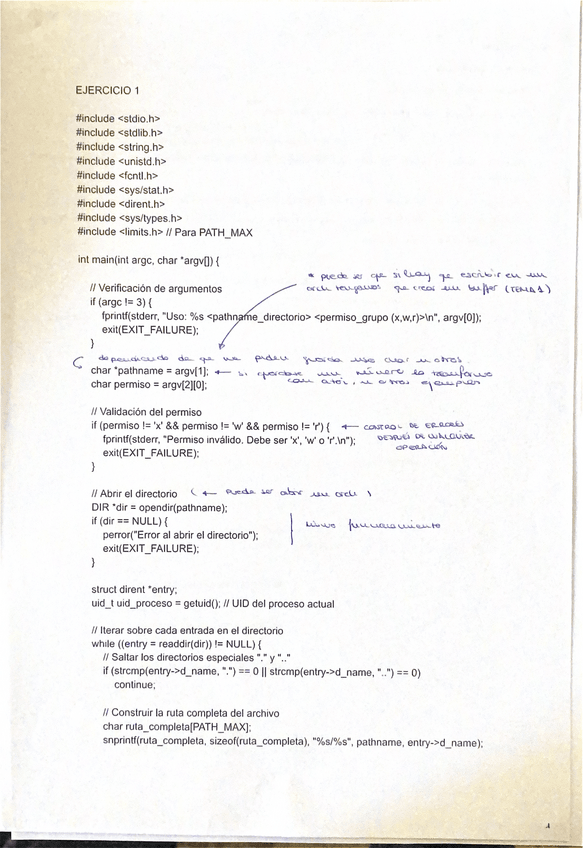 EJERCICIO 1
#include <stdio.h>
#include <stdlib.h>
#include <string.h>
#include <unistd.h>
#include <fcntl.h>
#include <sys/stat.h>
#include <dirent.h>
#include <sys/types.h>
#include <limits.h> // Para PATH_MAX
int main(int argc, char *argv[]) {
* puede ser que si hay que escribir en un
arch tengamos que crear un buffer (TEMA 1)
// Verificación de argumentos
if (argc != 3) {
fprintf(stderr, "Uso: %s <pathname_directorio> <permiso_grupo (x,w,r)>\n", argv[0]);
exit(EXIT_FAILURE);
}
dependiendo de que me piden guardo uso char u otros
char *pathname = argv[1]; ← si guardase un número lo transformo
char permiso = argv[2][0]; con atoi, u otros ejemplos
// Validación del permiso
if (permiso != 'x' && permiso != 'w' && permiso != 'r') { ← CONTROL DE ERRORES
fprintf(stderr, "Permiso inválido. Debe ser 'x', 'w' o 'r'.\n"); DESPUÉS DE CUALQUIER
exit(EXIT_FAILURE); OPERACIÓN
}
// Abrir el directorio (← puede ser abrir un arch)
DIR *dir = opendir(pathname);
if (dir == NULL) { mismo funcionamiento
perror("Error al abrir el directorio");
exit(EXIT_FAILURE);
}
struct dirent *entry;
uid_t uid_proceso = getuid(); // UID del proceso actual
// Iterar sobre cada entrada en el directorio
while ((entry = readdir(dir)) != NULL) {
// Saltar los directorios especiales "." y ".."
if (strcmp(entry->d_name, ".") == 0 || strcmp(entry->d_name, "..") == 0)
continue;
// Construir la ruta completa del archivo
char ruta_completa[PATH_MAX];
snprintf(ruta_completa, sizeof(ruta_completa), "%s/%s", pathname, entry->d_name);